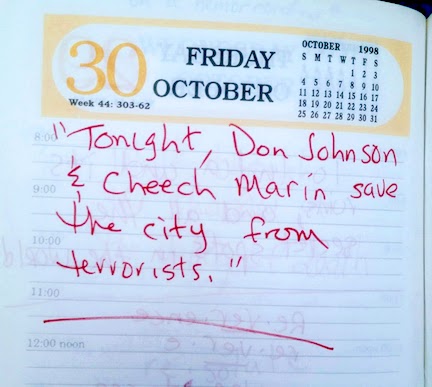 30
FRIDAY
OCTOBER
Week 44: 303-62
OCTOBER 1998
S M T W T F S
1 2 3
4 5 6 7 8 9 10
11 12 13 14 15 16 17
18 19 20 21 22 23 24
25 26 27 28 29 30 31
8:00
"Tonight, Don Johnson
& Cheech Marin save
9:00
the city from
10:00
terrorists."
11:00
12:00 noon